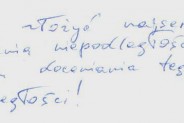 złożyć najser
nia niepodległośc
doceniania teg
egłości!